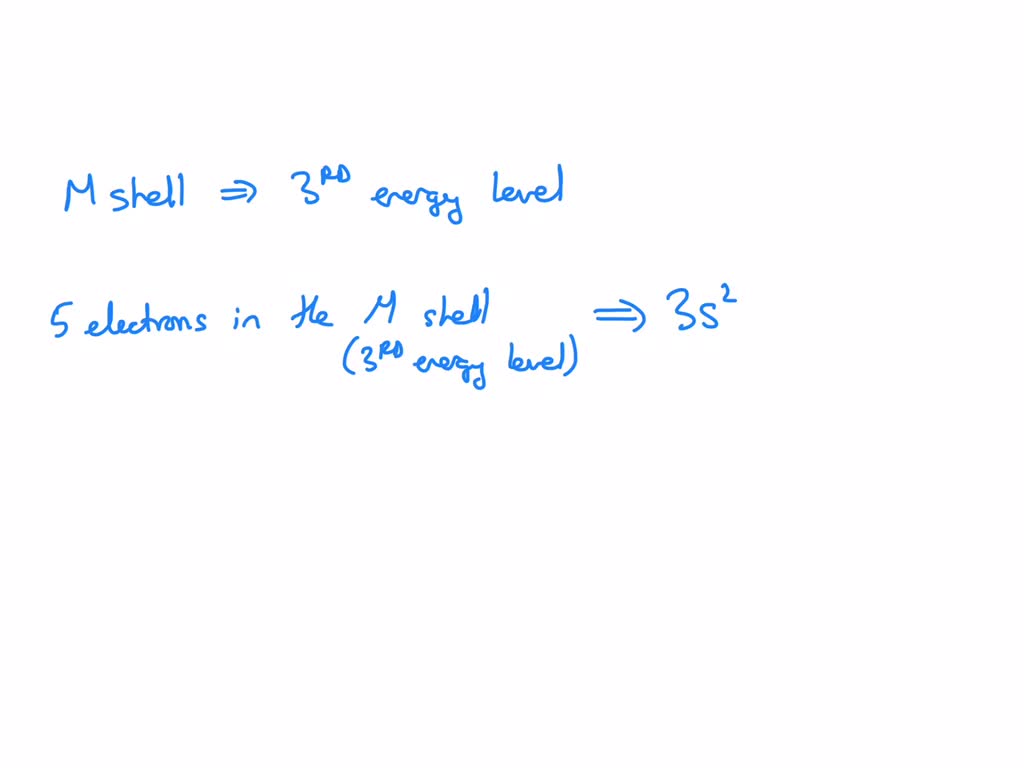 M shell ⇒ 3ᴿᴰ energy level
5 electrons in the M shell ⇒ 3s²
(3ᴿᴰ energy level)